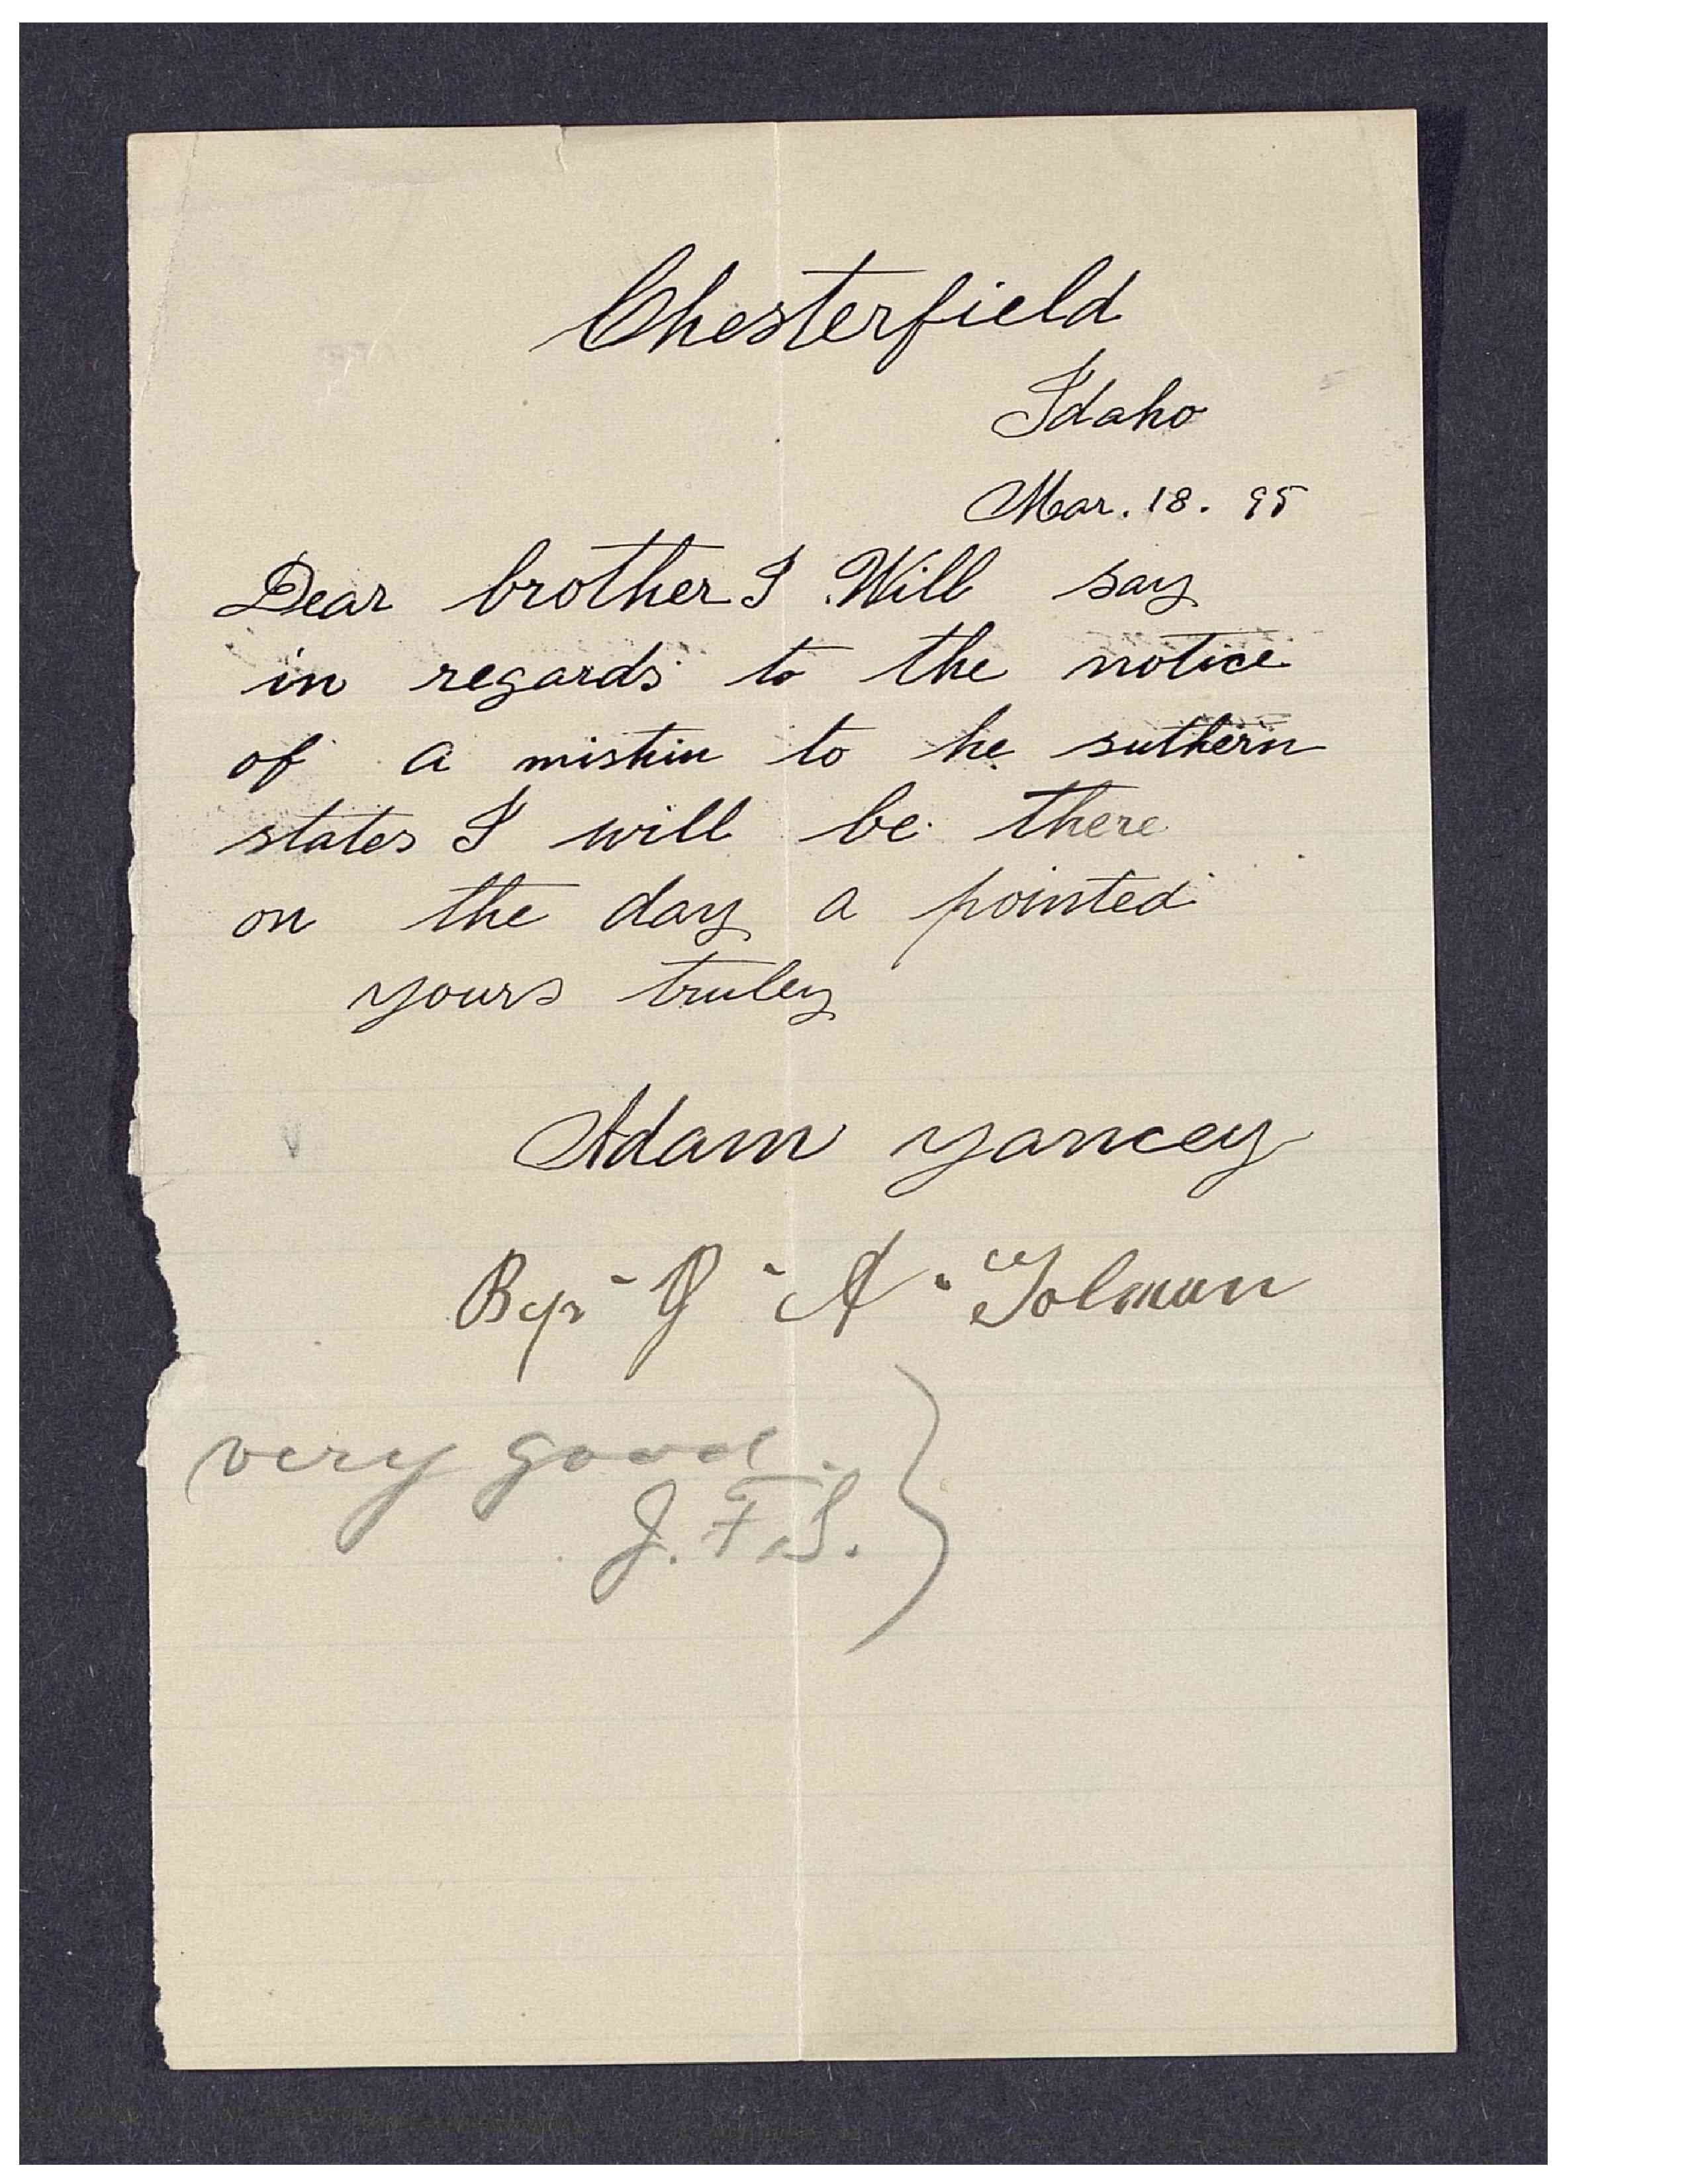 Chesterfield
Idaho
Mar. 18. 95
Dear brother I Will say
in regards to the notice
of a mishin to he suthern
states I will be there
on the day a pointed
yours truley
Adam yancey
Bp - J - A - Tolman
very good.
J. F. S.